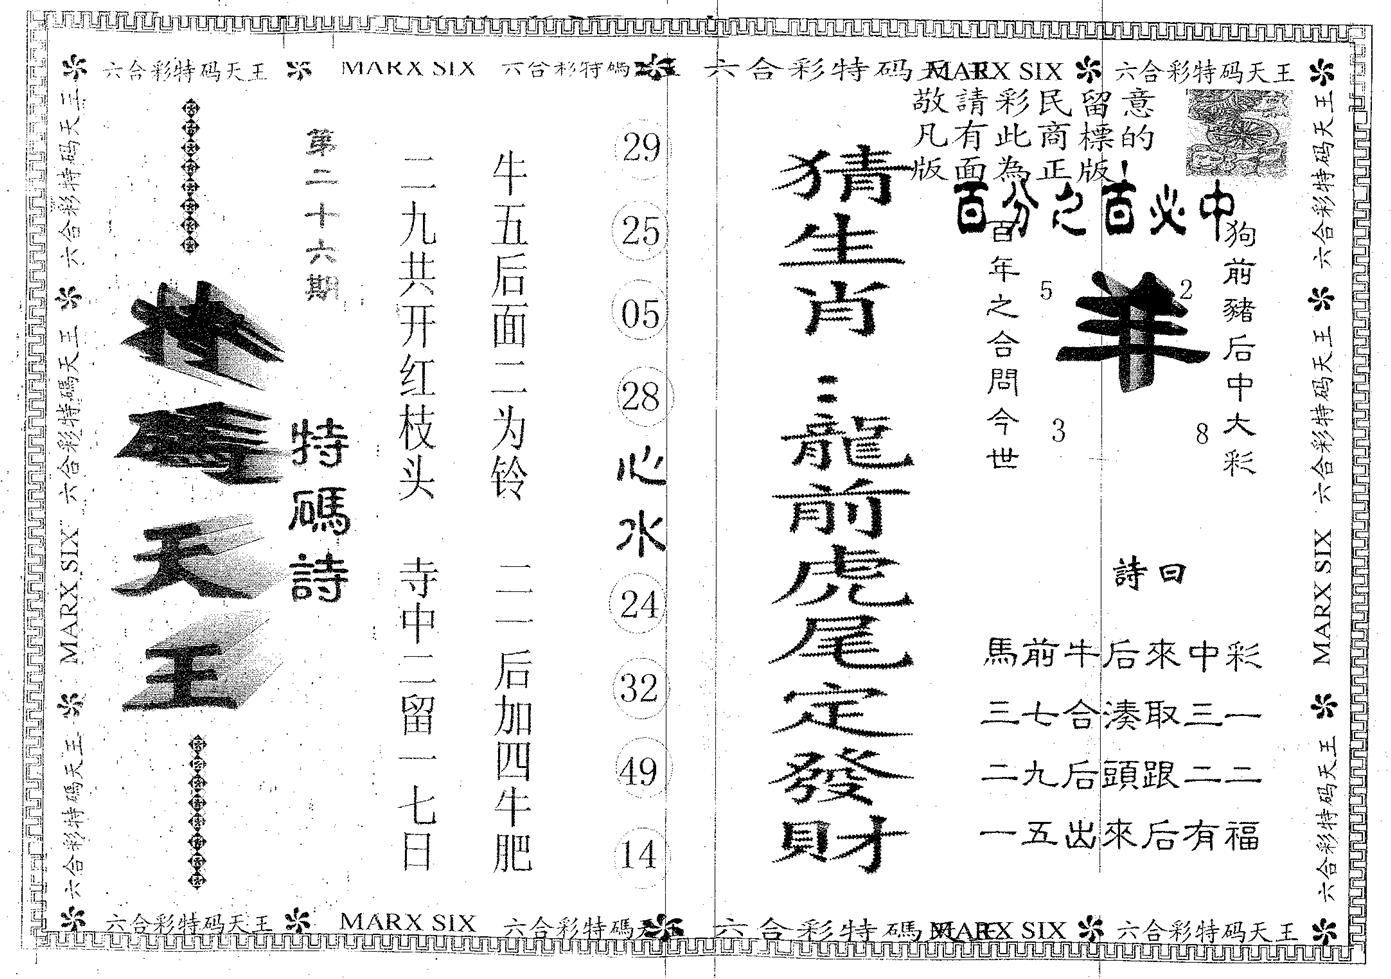 六合彩特码天王 MARX SIX 六合彩特碼天王 六合彩特码天王 MARX SIX 六合彩特码天王
六合彩特码天王
六合彩特碼天王
MARX SIX
六合彩特码天王
特碼天王
第二十六期
特碼詩
二九共开红枝头 寺中二留一七日
牛五后面二为铃 二一后加四牛肥
29
25
05
28
心水
24
32
49
14
猜生肖：龍前虎尾定發財
敬請彩民留意
凡有此商標的
版面為正版！
百分之百必中
百年之合問今世
5
2
羊
3
8
狗前豬后中大彩
詩曰
馬前牛后來中彩
三七合湊取三一
二九后頭跟二二
一五出來后有福
六合彩特码天王
六合彩特码天王
MARX SIX
六合彩特码天王
六合彩特码天王 MARX SIX 六合彩特碼天王 六合彩特碼天王 MARX SIX 六合彩特码天王